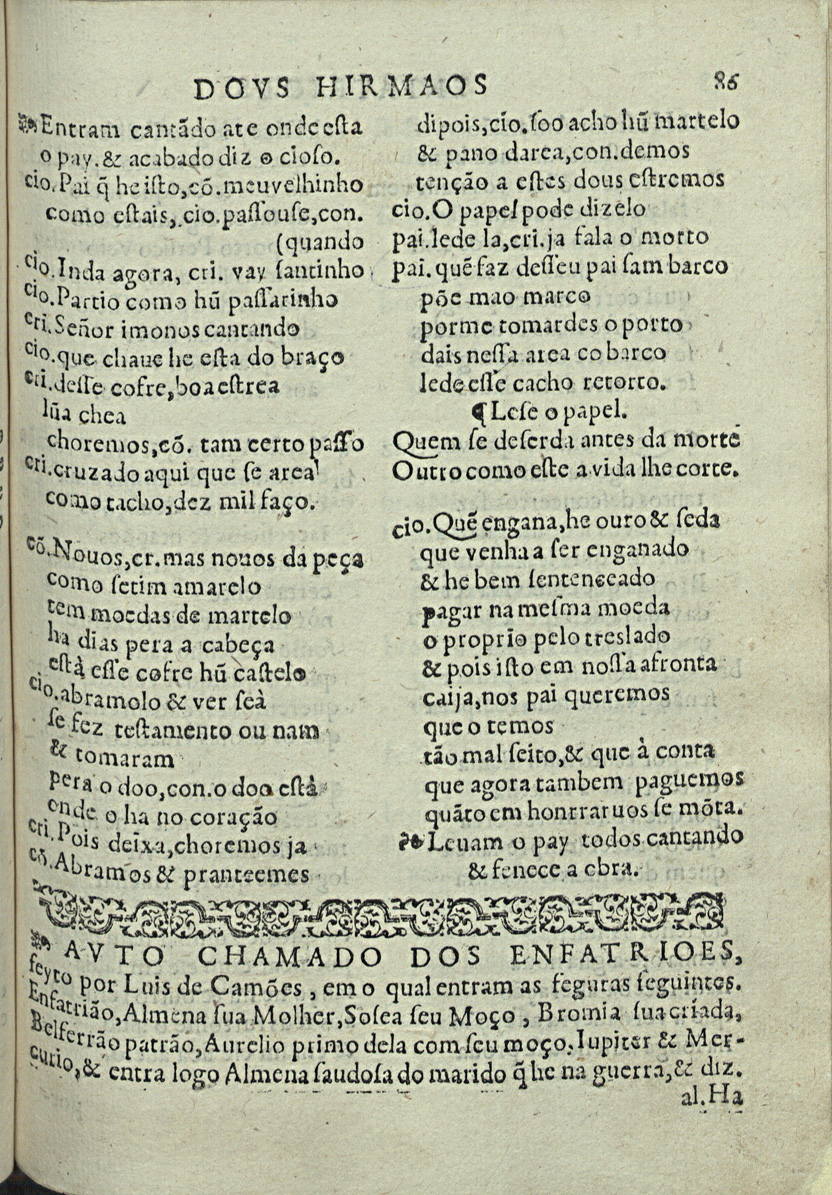 DOVS HIRMAOS 86
Entram cantãdo ate onde esta
o pay. & acabado diz o cioso.
cio. Pai q̃ he isto, cõ. meu velhinho
como estais, cio. passouse, con.
(quando
cio. Inda agora, cri. vay santinho
cio. Partio como hũ passarinho
cri. Señor imonos cantando
cio. que chaue he esta do braço
cri. desse cofre, boa estrea
lũa chea
choremos, cõ. tam certo passo
cri. cruzado aqui que se area
como tacho, dez mil faço.
cõ. Nouos, cr. mas nouos da peça
como setim amarelo
tem moedas de martelo
ha dias pera a cabeça
està esse cofre hũ castelo
cio. abramolo & ver seà
se fez testamento ou nam
& tomaram
pera o doo, con. o doo està
onde o ha no coração
cri. Pois deixa, choremos ja
cõ. Abramos & pranteemes
dipois, cio. soo acho hũ martelo
& pano darea, con. demos
tenção a estes dous estremos
cio. O papel pode dizelo
pai. lede la, cri. ja fala o morto
pai. quẽ faz desseu pai sam barco
põe mao marco
por me tomardes o porto
dais nessa area co barco
lede esse cacho retorto.
¶ Lese o papel.
Quem se deserda antes da morte
Outro como este a vida lhe corte.
cio. Quẽ engana, he ouro & seda
que venha a ser enganado
& he bem sentenceado
pagar na mesma moeda
o proprio pelo treslado
& pois isto em nossa afronta
caija, nos pai queremos
que o temos
tão mal feito, & que à conta
que agora tambem paguemos
quãto em honrraruos se mõta.
Leuam o pay todos cantando
& fenece a obra.
AVTO CHAMADO DOS ENFATRIOES,
feyto por Luis de Camões, em o qual entram as feguras seguintes.
Enfatrião, Almena sua Molher, Sosea seu Moço, Bromia sua criada,
Belferrão patrão, Aurelio primo dela com seu moço. Iupiter & Mer-
curio, & entra logo Almena saudosa do marido q̃ he na guerra, & diz.
al. Ha